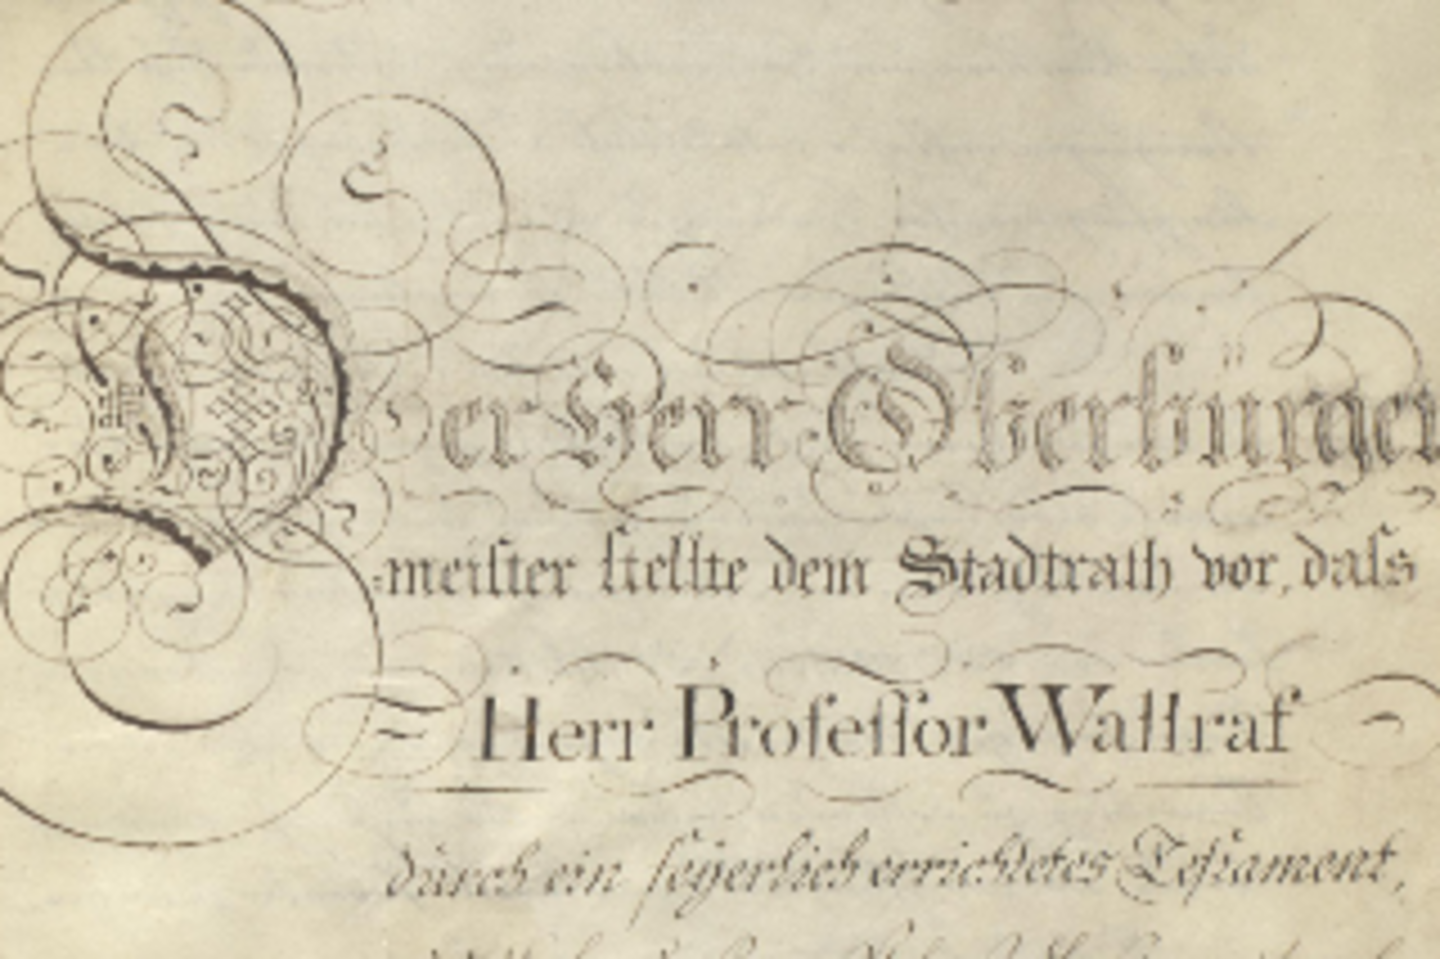 Der Herr Oberbürger
=meiſter ſtellte dem Stadtrath vor, daſs
Herr Profeſſor Wallraf
durch ein feyerlich errichtetes Teſtament,